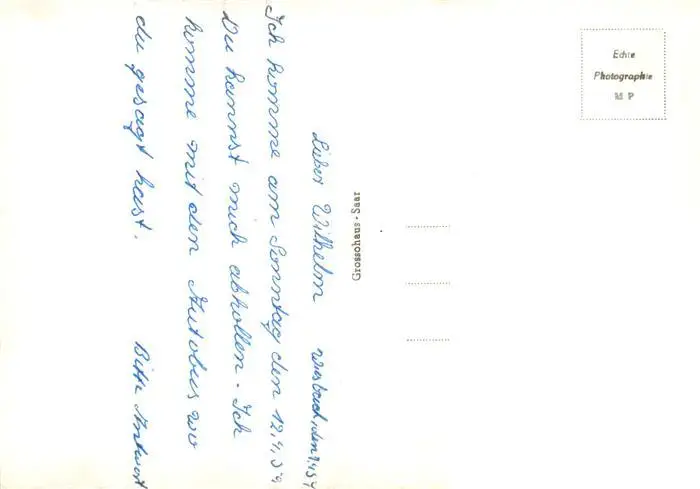 Echte
Photographie
M P
Grossohaus - Saar
Lieber Wilhelm
Ich komme am Sonntag den 12,4,59
Du kannst mich abhollen. Ich
komme mit den Autobus wo
du gesagt hast. Bitte Antwort